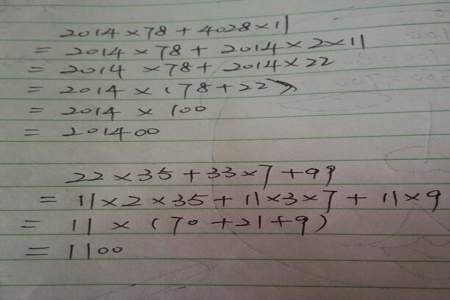 2014×78+4028×11
=2014×78+2014×2×11
=2014×78+2014×22
=2014×(78+22)
=2014×100
=201400
22×35+33×7+99
=11×2×35+11×3×7+11×9
=11×(70+21+9)
=1100